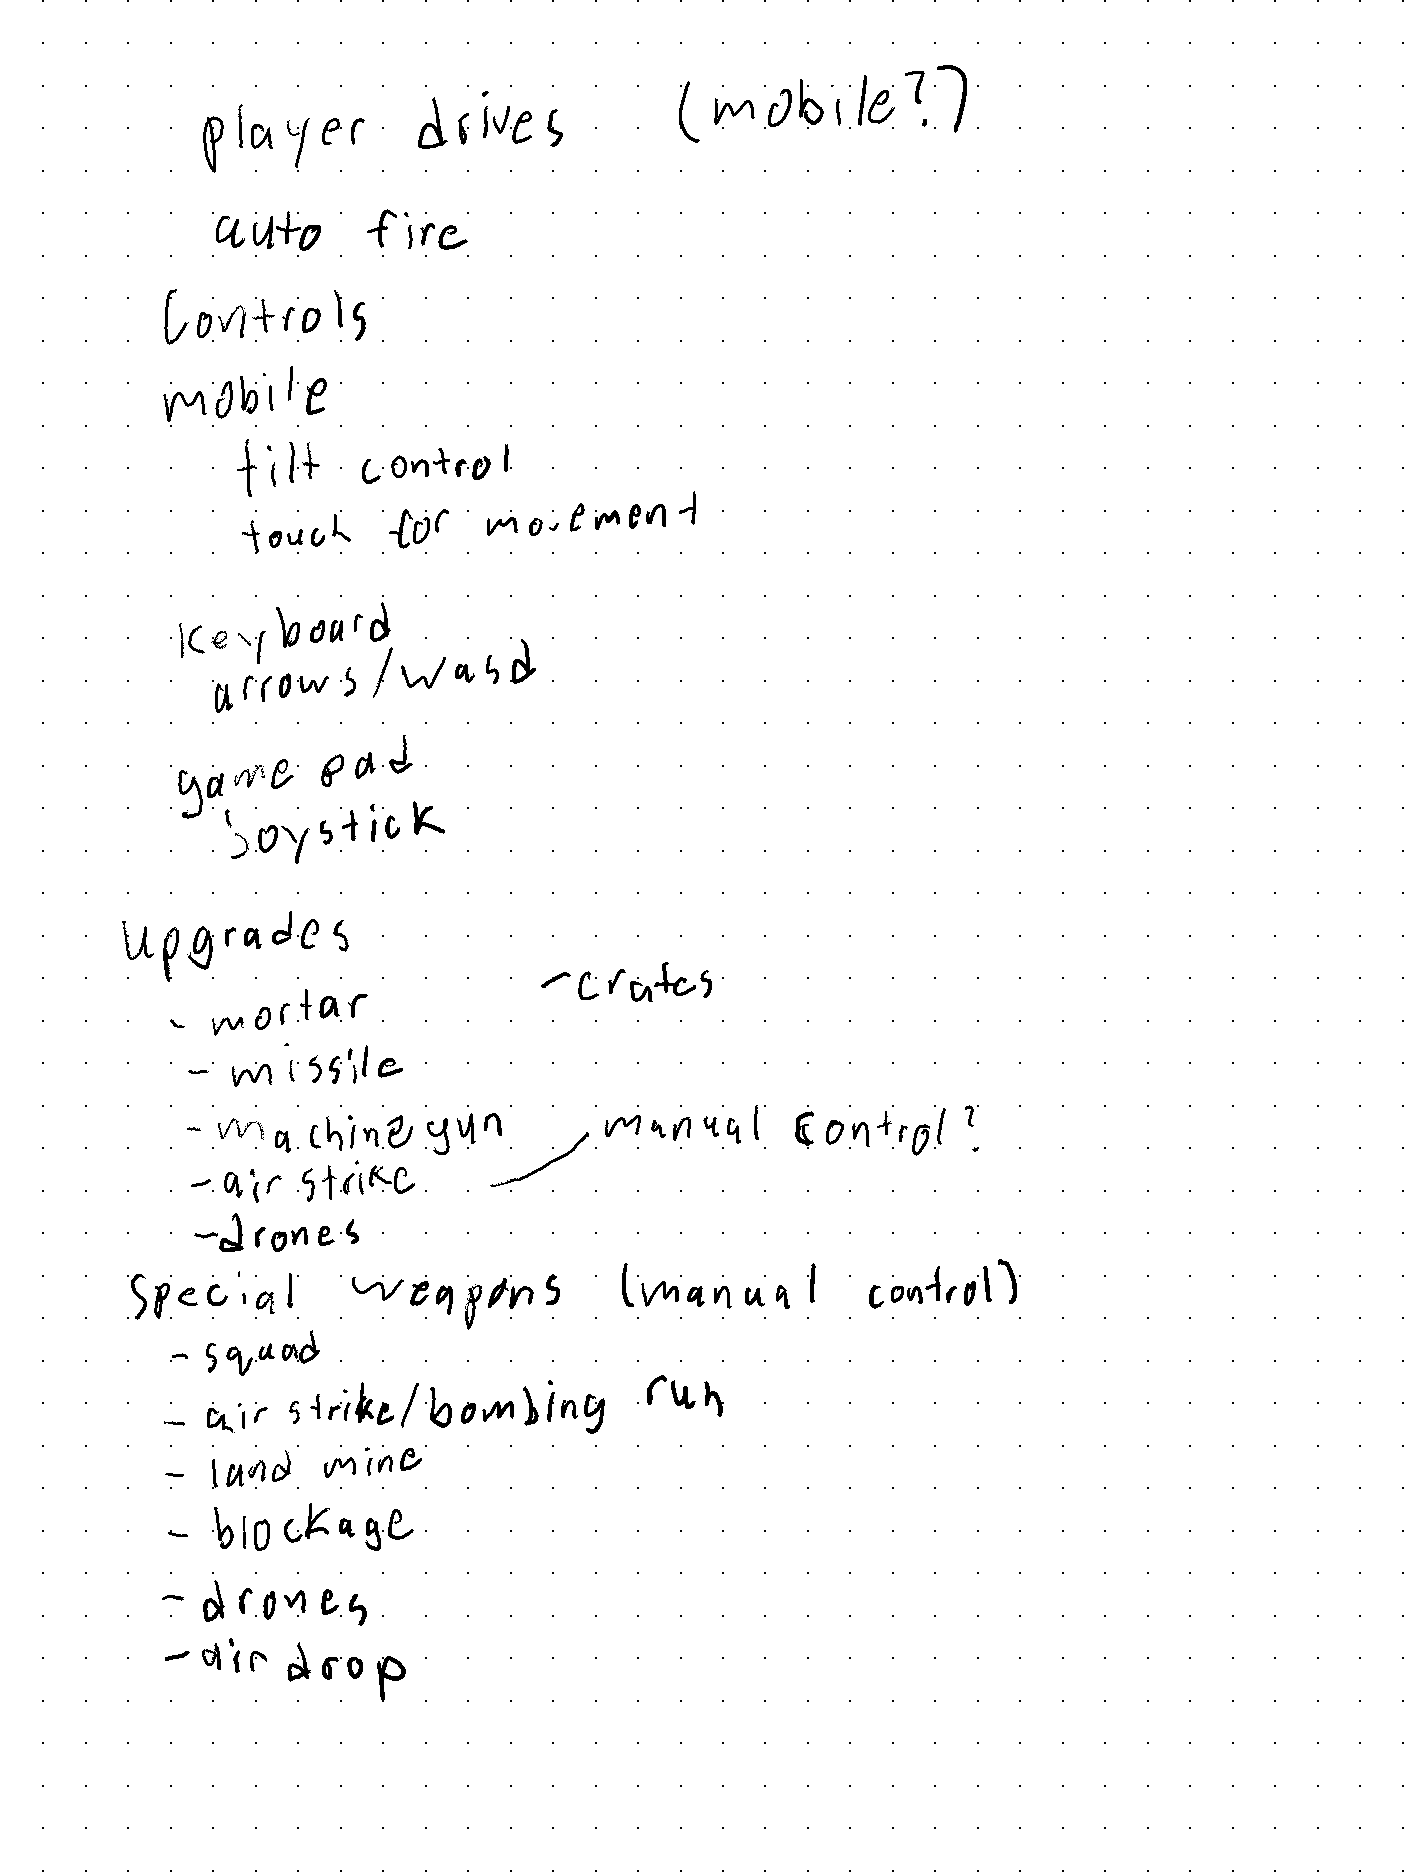 player drives (mobile?)
auto fire
Controls
mobile
tilt control
touch for movement
Keyboard
arrows/wasd
game pad
joystick
Upgrades
- crates
- mortar
- missile
- machine gun
manual control?
- air strike
- drones
Special weapons (manual control)
- squad
- air strike/bombing run
- land mine
- blockage
- drones
- air drop